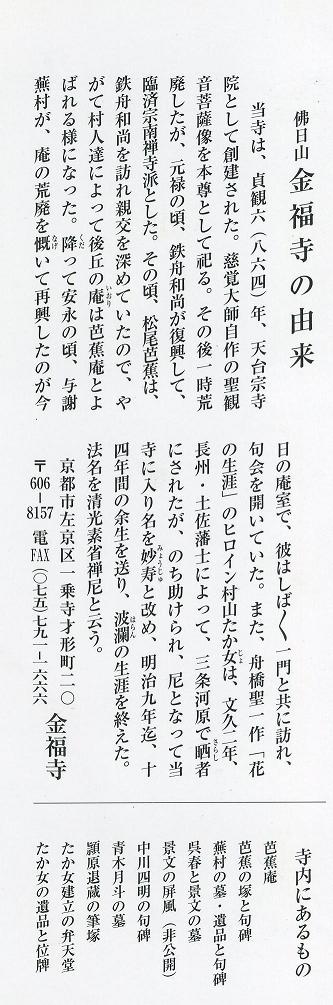 佛日山 金福寺の由来
当寺は、貞観六(八六四)年、天台宗寺
院として創建された。慈覚大師自作の聖観
音菩薩像を本尊として祀る。その後一時荒
廃したが、元禄の頃、鉄舟和尚が復興して、
臨済宗南禅寺派とした。その頃、松尾芭蕉は、
鉄舟和尚を訪れ親交を深めていたので、や
がて村人達によって後丘の庵は芭蕉庵とよ
ばれる様になった。降って安永の頃、与謝
蕪村が、庵の荒廃を慨いて再興したのが今
日の庵室で、彼はしば〱一門と共に訪れ、
句会を開いていた。また、舟橋聖一作「花
の生涯」のヒロイン村山たか女は、文久二年、
長州・土佐藩士によって、三条河原で晒者
にされたが、のち助けられ、尼となって当
寺に入り名を妙寿と改め、明治九年迄、十
四年間の余生を送り、波瀾の生涯を終えた。
法名を清光素省禅尼と云う。
京都市左京区一乗寺才形町二〇
〒606-8157 電FAX(〇七五)七九一-一六六六
金福寺
寺内にあるもの
芭蕉庵
芭蕉の塚と句碑
蕪村の墓・遺品と句碑
呉春と景文の墓
景文の屏風(非公開)
中川四明の句碑
青木月斗の墓
潁原退蔵の筆塚
たか女建立の弁天堂
たか女の遺品と位牌